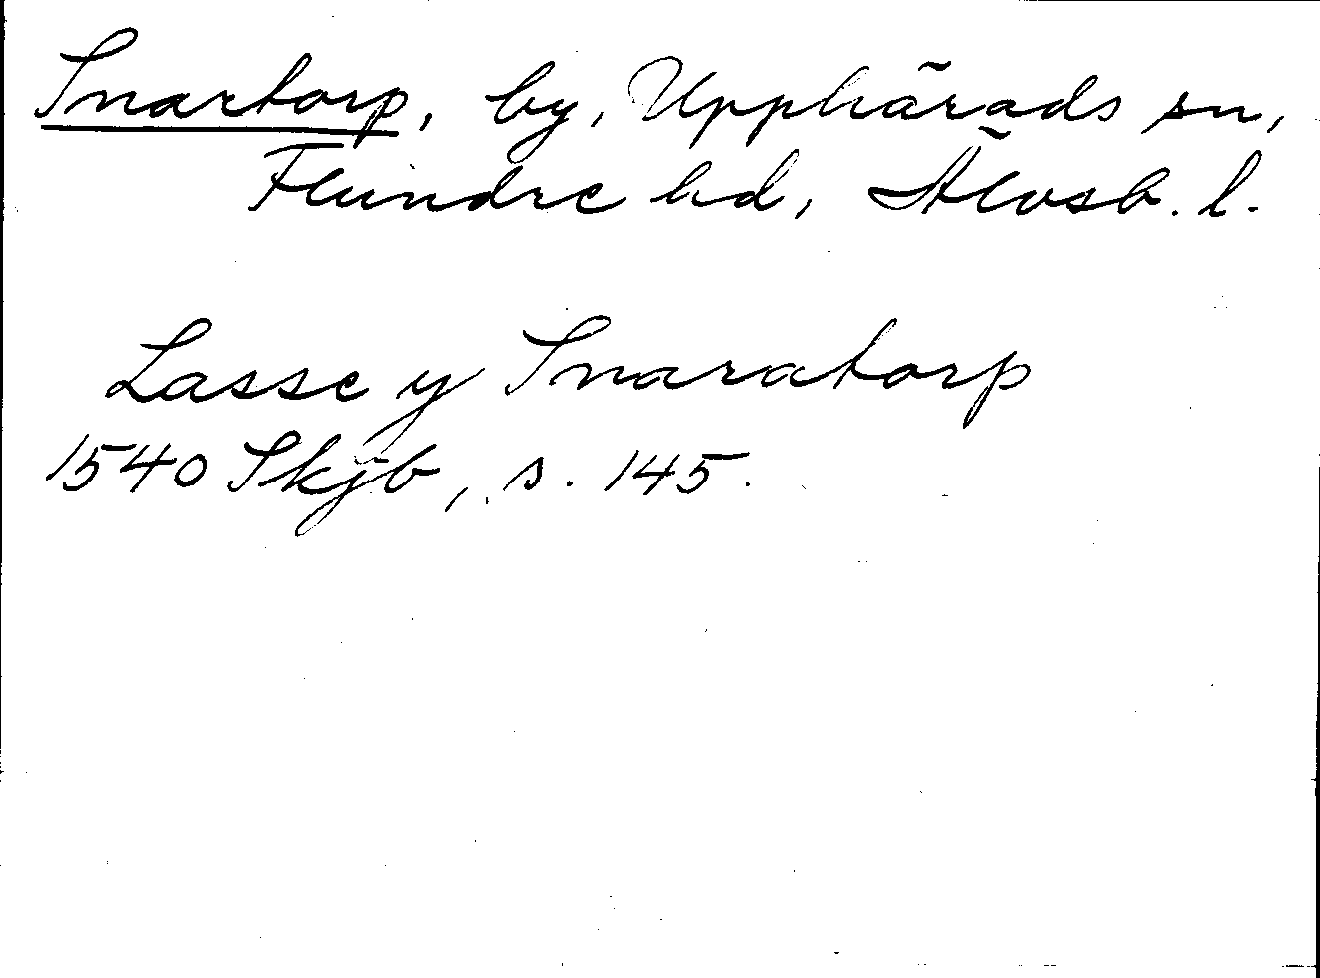 Snartorp, by, Upphärads sn,
Flundre hd, Älvsb. l.
Lasse y Snaratorp
1540 Skjb, s. 145.